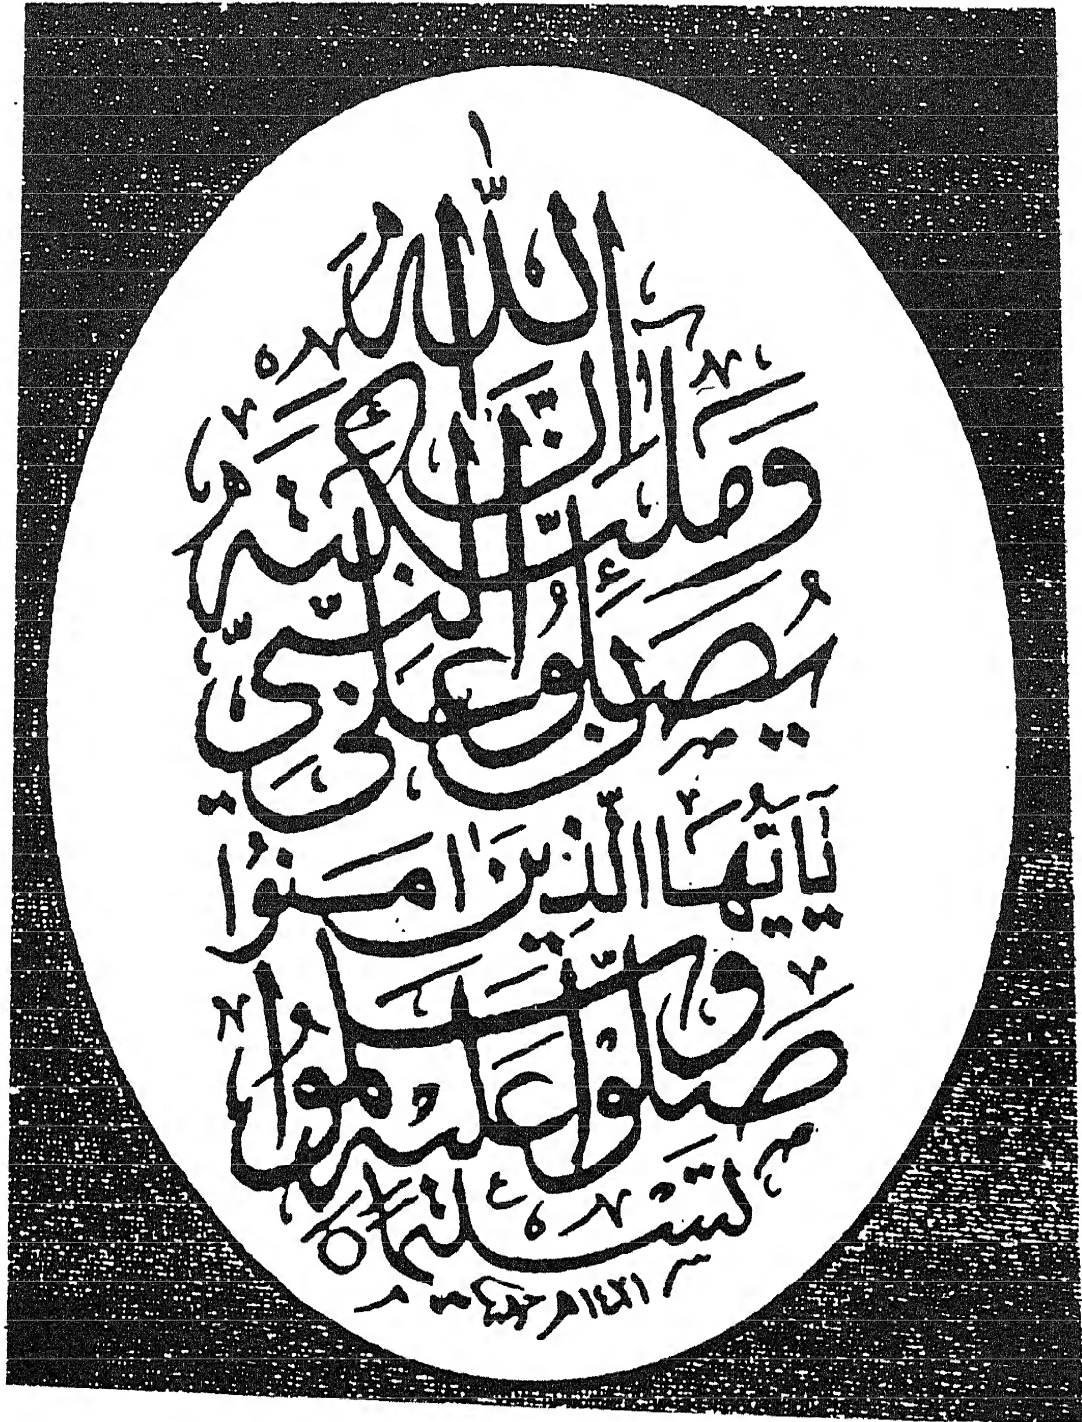 إن الله
وملئكته
يصلون على النبي
يا أيها الذين آمنوا
صلوا عليه وسلموا
تسليما